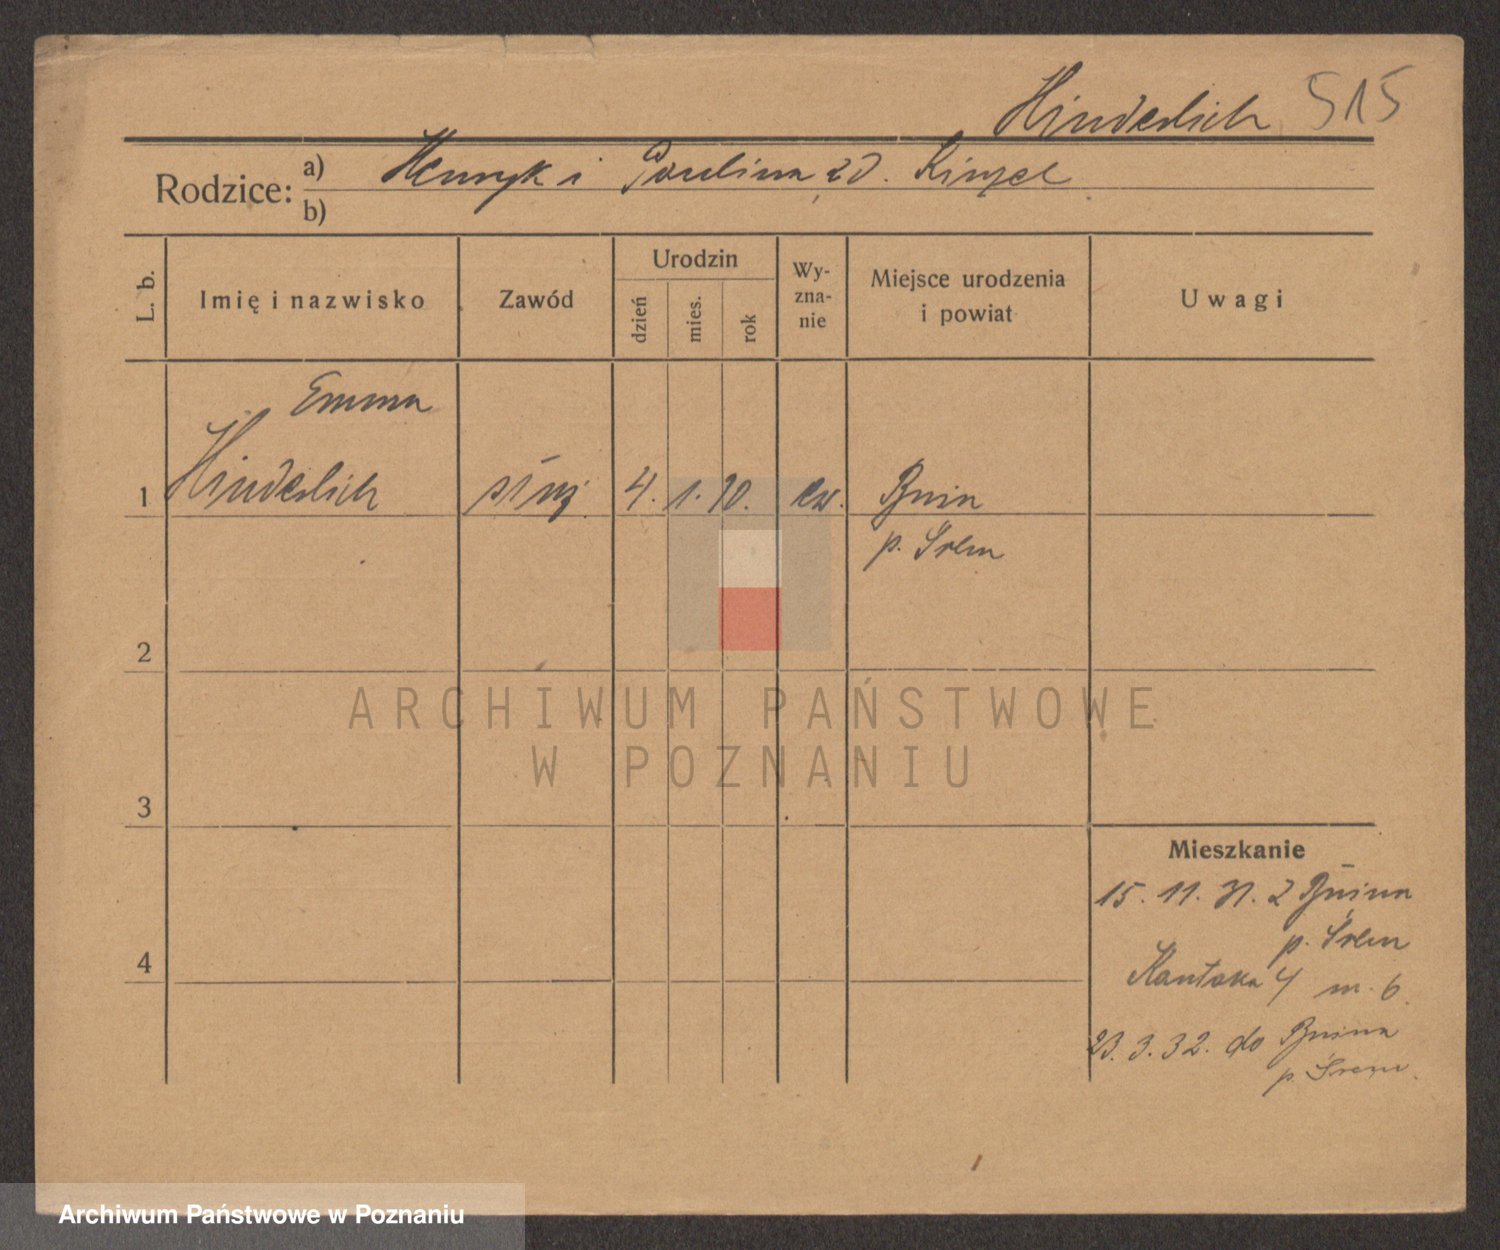 Hinderlich 515
Rodzice: a) Henryk i Paulina zd. Kinzel
b)
L. b.
Imię i nazwisko
Zawód
Urodzin
dzień
mies.
rok
Wy-
zna-
nie
Miejsce urodzenia
i powiat
Uwagi
Emma
1 Hinderlich służ 4. 1. 10. ew. Bnin
p. Śrem
2
3
4
ARCHIWUM PAŃSTWOWE
W POZNANIU
Mieszkanie
15. 11. 31. z Bnina
p. Śrem
Kantaka 4 m. 6.
23. 3. 32. do Bnina
p. Śrem.
Archiwum Państwowe w Poznaniu